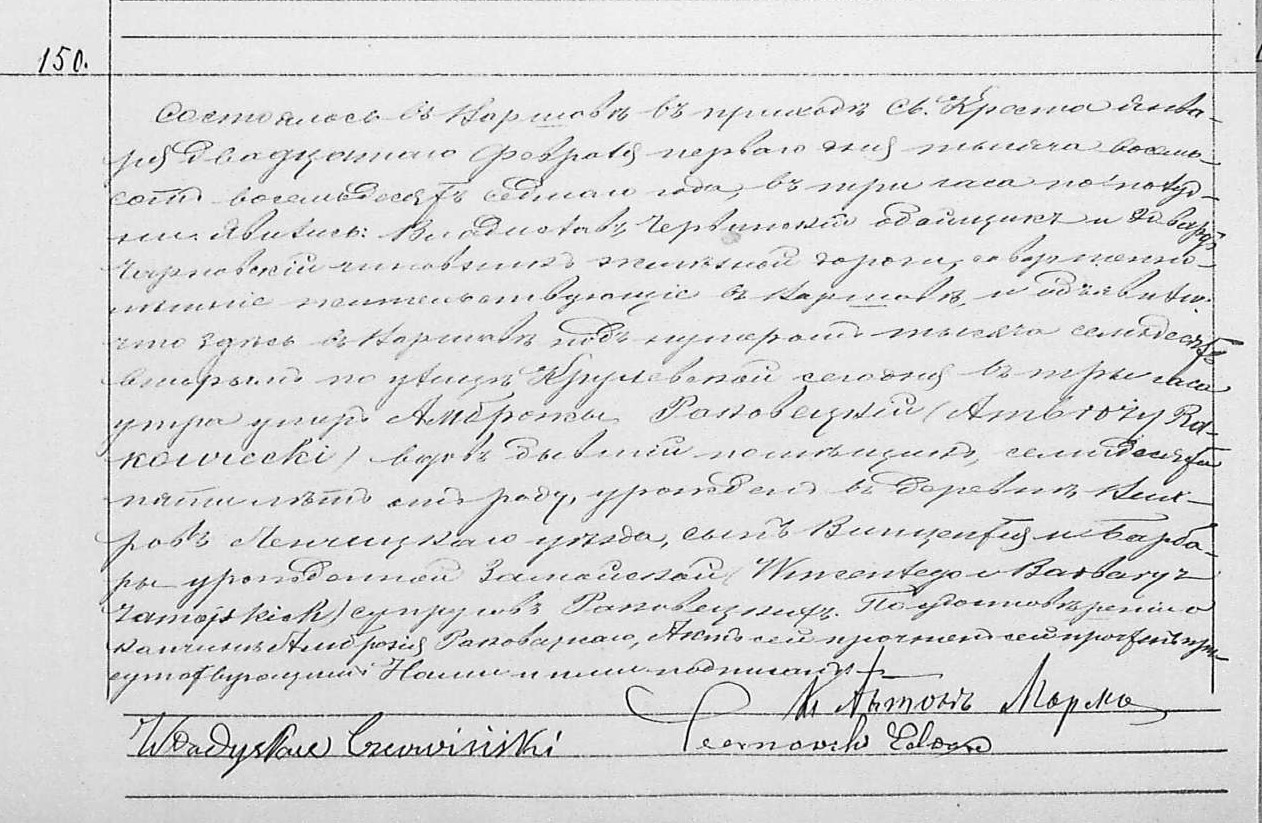 150.
Состоялось въ Варшавѣ въ приходѣ Св. Креста Янва-
ря двадцатаго Февраля перваго дня тысяча восемь-
сотъ восемьдесятъ седьмаго года, въ три часа по полуд-
ни. Явились: Владиславъ Червинскій обойщикъ и Эдвардъ
Чарновскій чиновникъ желѣзной дороги, совершенно-
лѣтніе жительствующіе въ Варшавѣ, и объявили
что здѣсь въ Варшавѣ подъ нумеромъ тысяча семьдесятъ
вторымъ по улицѣ Крулевской сегодня въ три часа
утра умеръ Амброжы Раковецкій (Ambroży Ra-
kowiecki) вдовъ бывшій помѣщикъ, семьдесяти
пяти лѣтъ отъ роду, урожденъ въ деревнѣ
ровъ Ленчицкаго уѣзда, сынъ Винцентія и Барба-
ры урожденной Замойской (Wincentego i Barbary z
Zamojskich) супруговъ Раковецкихъ. По удостовѣреніи о
кончинѣ Амброжія Раковецкаго, Актъ сей прочтенъ при-
сутствующимъ Нами и ими подписанъ
Кс Антонъ
Władysław Czerwiński Czarnowski Edward